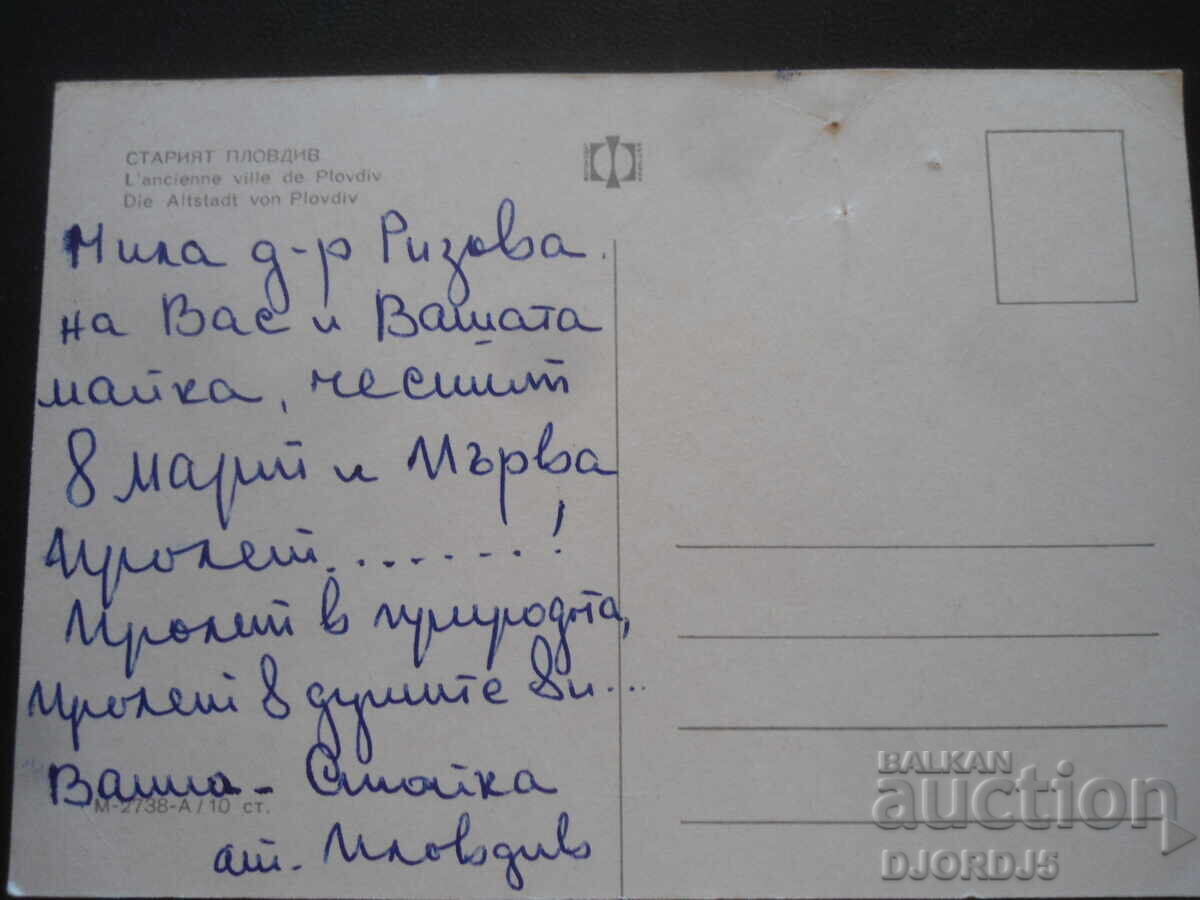 СТАРИЯТ ПЛОВДИВ
L'ancienne ville de Plovdiv
Die Altstadt von Plovdiv
Мила д-р Ризова.
на Вас и Вашата
майка, честит
8 март и Първа
пролет.......!
Пролет в природата,
пролет в душите ви...
Ваша - Стойка
М-2738-А/10 ст.
от. Пловдив
BALKAN
auction
DJORDJ5